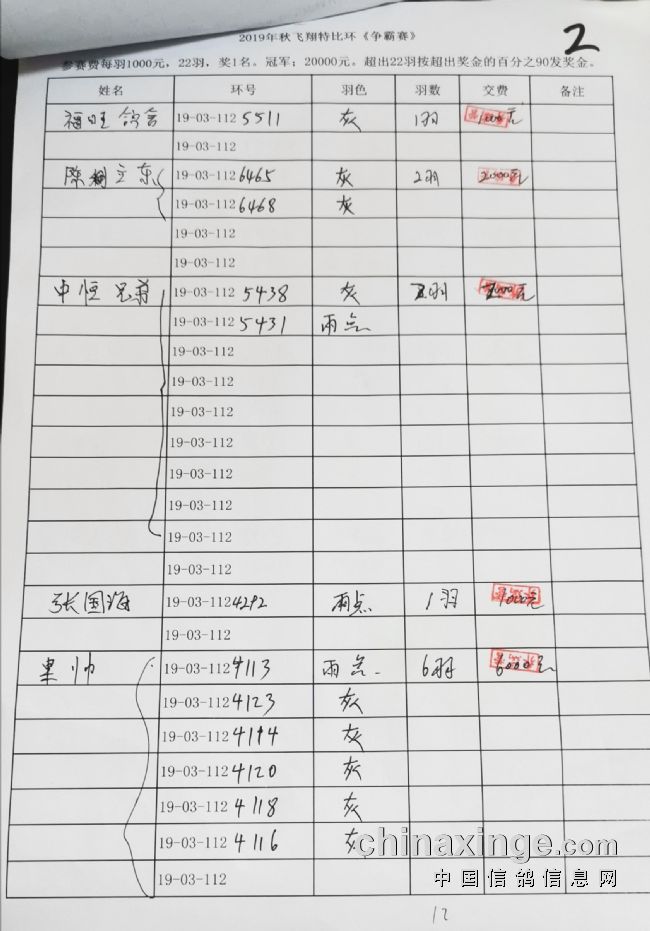 2
2019年秋飞翔特比环《争霸赛》
参赛费每羽1000元，22羽，奖1名。冠军；20000元。超出22羽按超出奖金的百分之90发奖金。
姓名 环号 羽色 羽数 交费 备注
福旺鸽舍 19-03-112 5511 灰 1羽 1000元
19-03-112
陈 立东 19-03-112 6465 灰 2羽 2000元
19-03-112 6468 灰
19-03-112
19-03-112
中恒兄弟 19-03-112 5438 灰 羽 元
19-03-112 5431 雨点
19-03-112
19-03-112
19-03-112
19-03-112
19-03-112
19-03-112
19-03-112
19-03-112
张国海 19-03-112 4292 雨点 1羽 1000元
19-03-112
帅 19-03-112 4113 雨点 6羽 6000元
19-03-112 4123 灰
19-03-112 4114 灰
19-03-112 4120 灰
19-03-112 4118 灰
19-03-112 4116 灰
19-03-112
chinaxinge.com
中国信鸽信息网
12